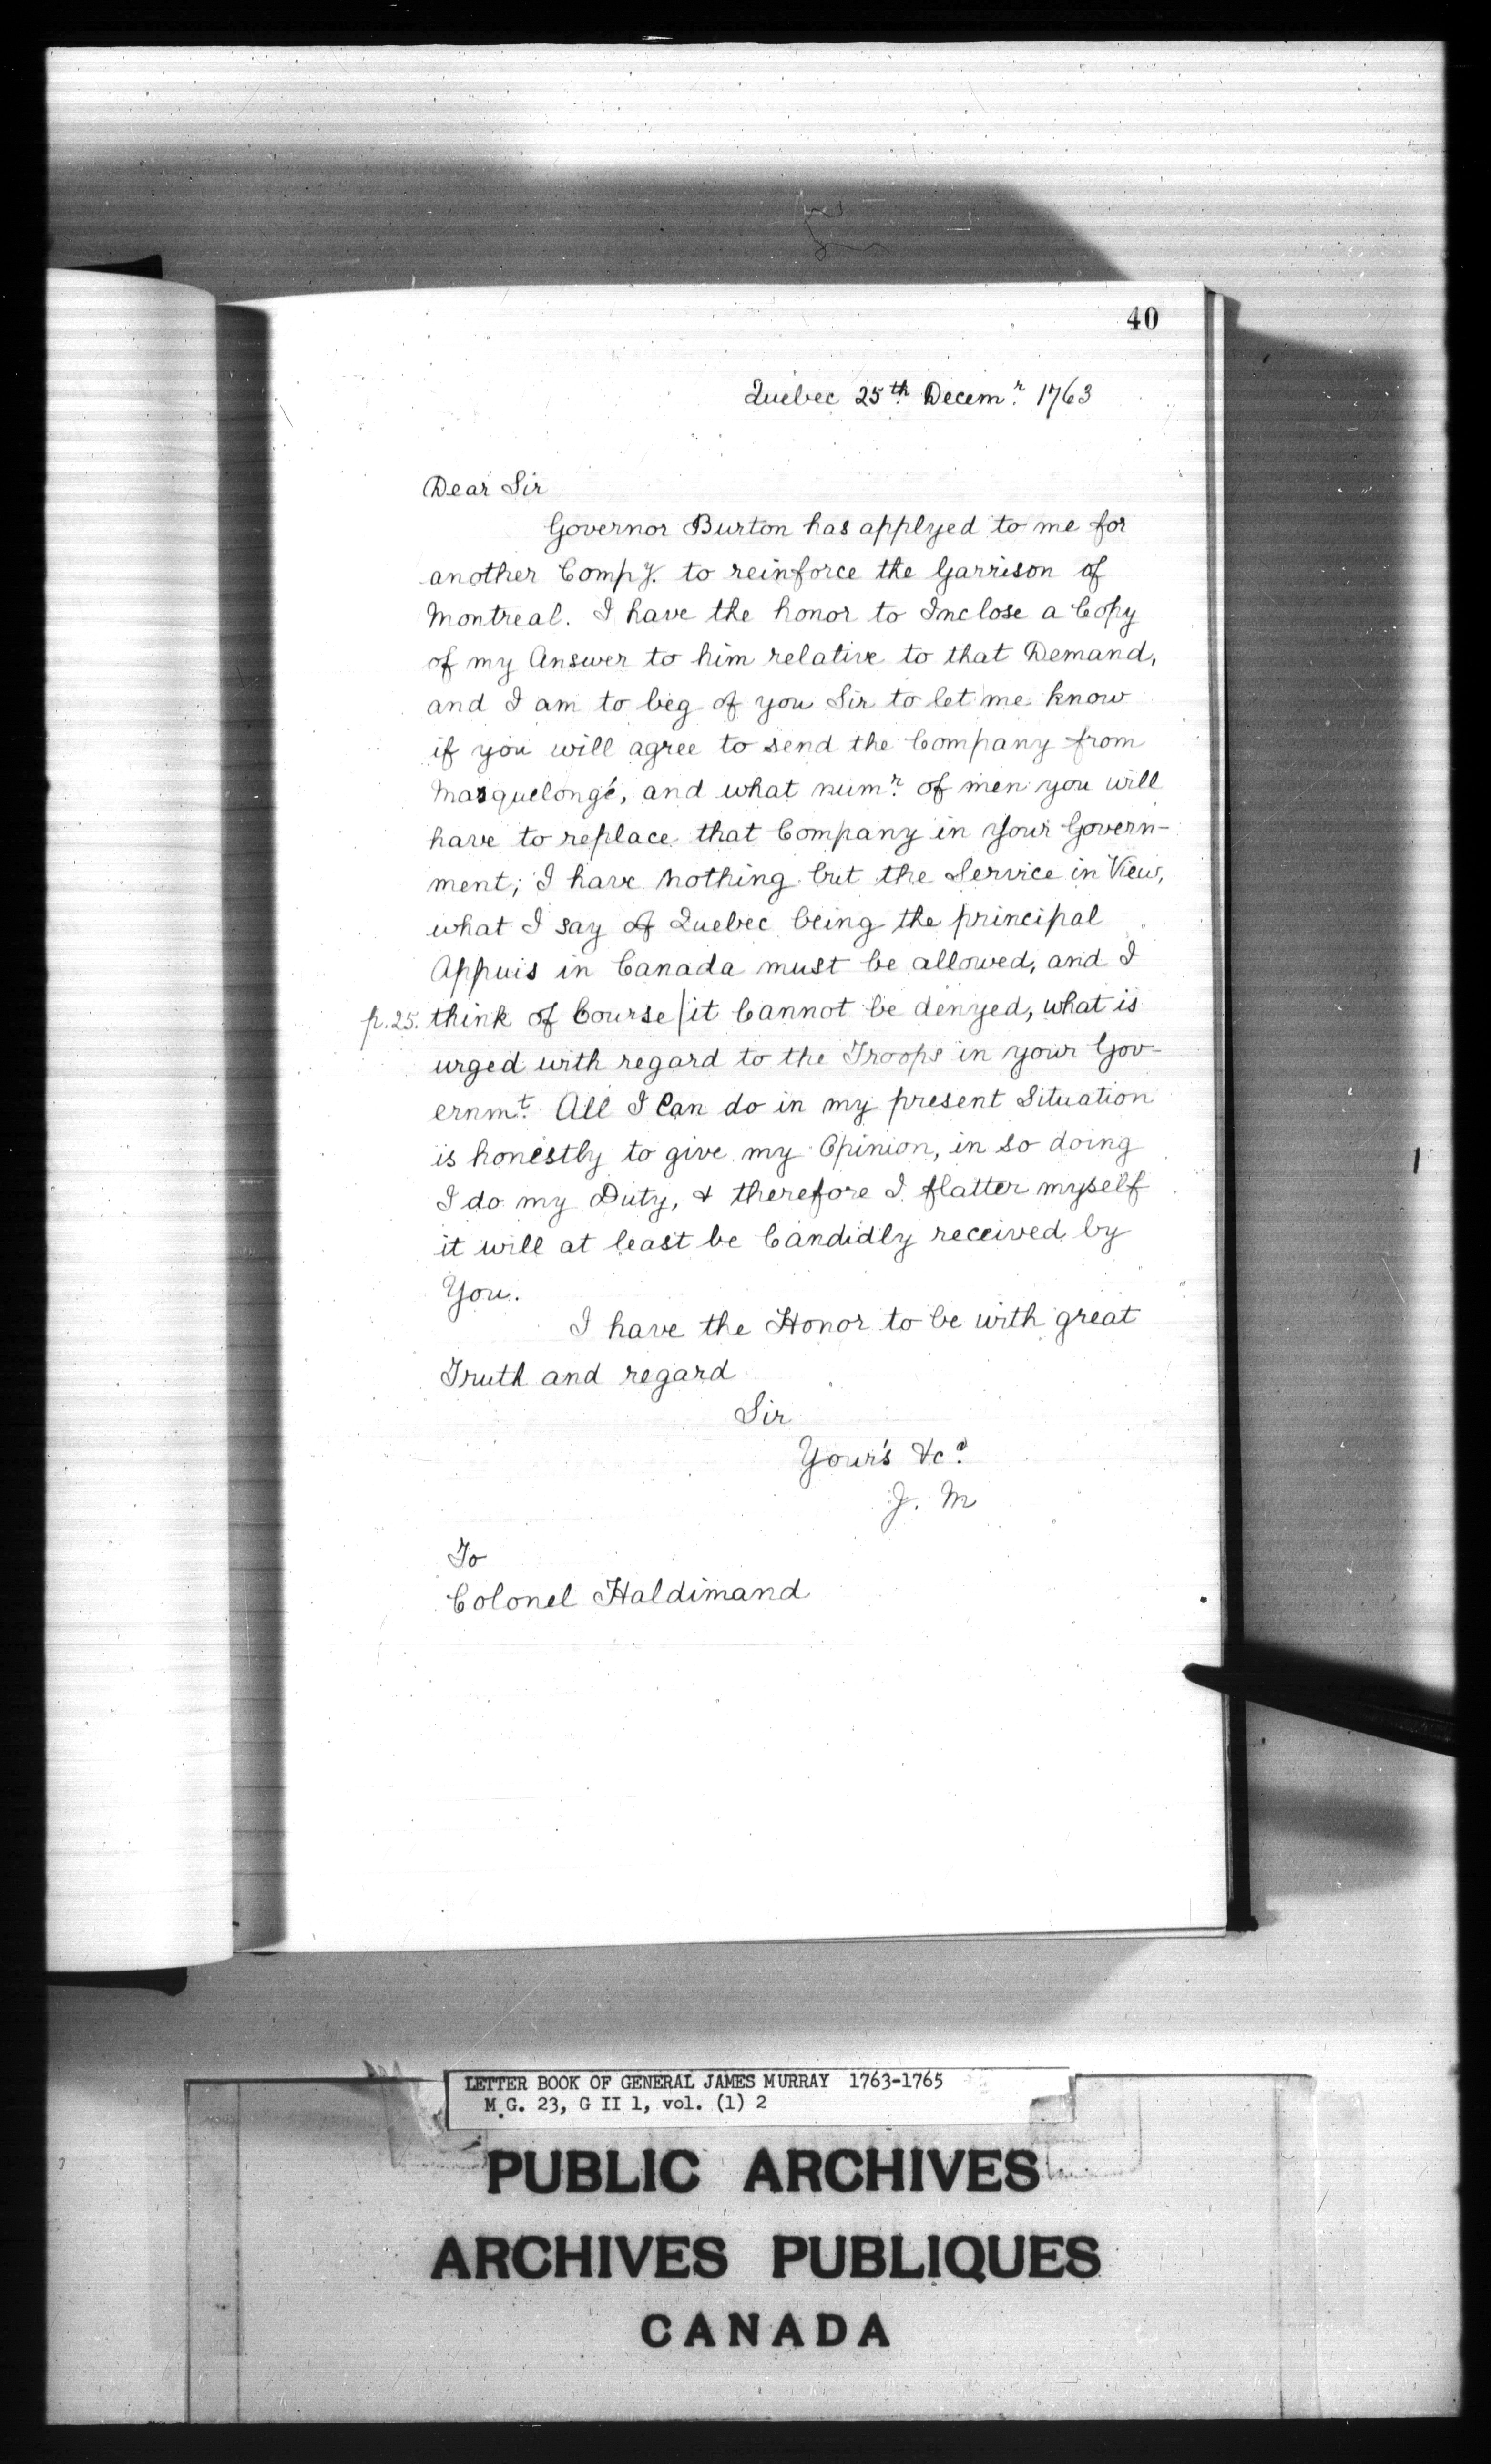 40
Quebec 25th Decemr. 1763
Dear Sir
Governor Burton has applyed to me for
another Compy. to reinforce the Garrison of
Montreal. I have the honor to Inclose a Copy
of my Answer to him relative to that Demand,
and I am to beg of you Sir to let me know
if you will agree to send the Company from
Masquelongé, and what numr. of men you will
have to replace that Company in Your Govern-
ment; I have nothing but the Service in View,
what I say of Quebec being the principal
Appuis in Canada must be allowed, and I
p.25. think of Course | it Cannot be denyed, what is
urged with regard to the Troops in your Gov-
ernmt. All I Can do in my present Situation
is honestly to give my Opinion, in so doing
I do my Duty, & therefore I flatter myself
it will at least be Candidly received by
You.
I have the Honor to be with great
Truth and regard
Sir
Your's &ca.
J. M
To
Colonel Haldimand
LETTER BOOK OF GENERAL JAMES MURRAY 1763-1765
M.G. 23, G II 1, vol. (1) 2
PUBLIC ARCHIVES
ARCHIVES PUBLIQUES
CANADA